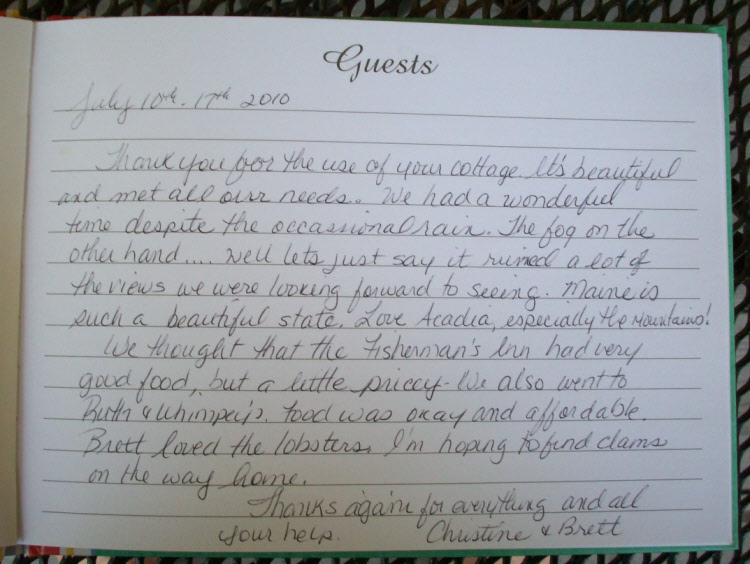 Guests
July 10th - 17th 2010
Thank you for the use of your cottage. It's beautiful
and met all our needs. We had a wonderful
time despite the occassional rain. The fog on the
other hand.... well lets just say it ruined a lot of
the views we were looking forward to seeing. Maine is
such a beautiful state. Love Acadia, especially the mountains!
We thought that the Fisherman's Inn had very
good food, but a little priccy - We also went to
Ruth & Whimpey's. food was okay and affordable.
Brett loved the lobsters. I'm hoping to find clams
on the way home.
Thanks again for everything and all
your help. Christine & Brett